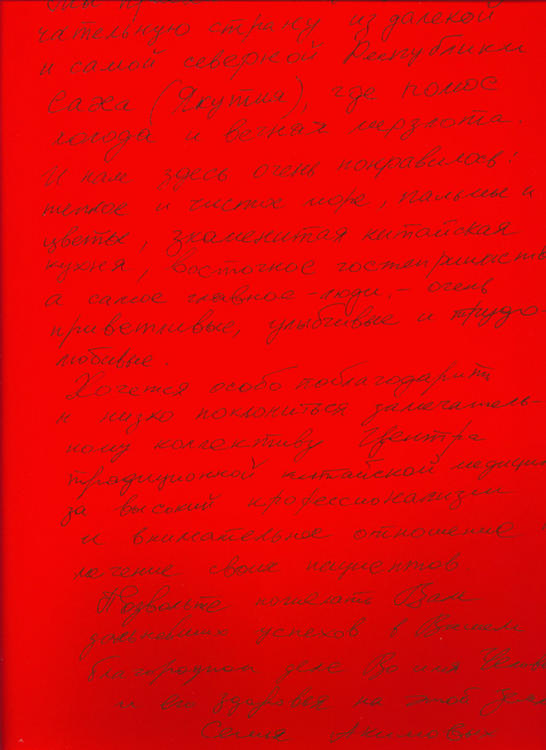 чательную страну из далекой
и самой северной Республики
Саха (Якутия), где полюс
холода и вечная мерзлота.
И нам здесь очень понравилось:
теплое и чистое море, пальмы и
цветы, знаменитая китайская
кухня, восточное гостеприимство
а самое главное - люди, - очень
приветливые, улыбчивые и трудо-
любивые.
Хочется особо поблагодарить
и низко поклониться замечатель-
ному коллективу Центра
традиционной китайской медицин
за высокий профессионализм
и внимательное отношение
лечение своих пациентов
Позвольте пожелать Вам
дальнейших успехов в Вашем
благородном деле Во имя
и его здоровья на этой
Семья